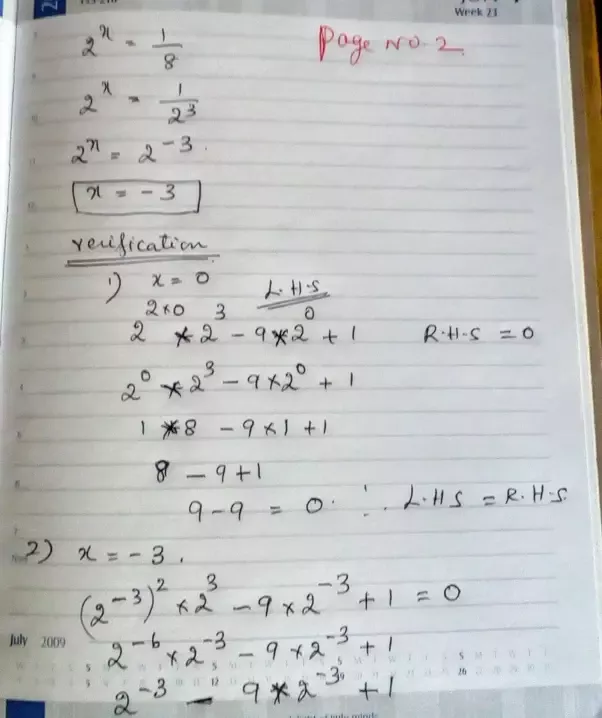 Week 23
Page NO. 2
2^x = 1/8
2^x = 1/2^3
2^x = 2^-3.
x = -3
verification
1) x = 0
L.H.S
2^2×0 * 2^3 - 9*2^0 + 1 R.H.S = 0
2^0 * 2^3 - 9×2^0 + 1
1 * 8 - 9×1 +1
8 - 9+1
9-9 = 0. ∴ L.H S = R.H.S
2) x = -3.
(2^-3)^2 × 2^3 - 9×2^-3 + 1 = 0
2^-6 × 2^-3 - 9×2^-3 + 1
July 2009
2^-3 - 9*2^-3 +1